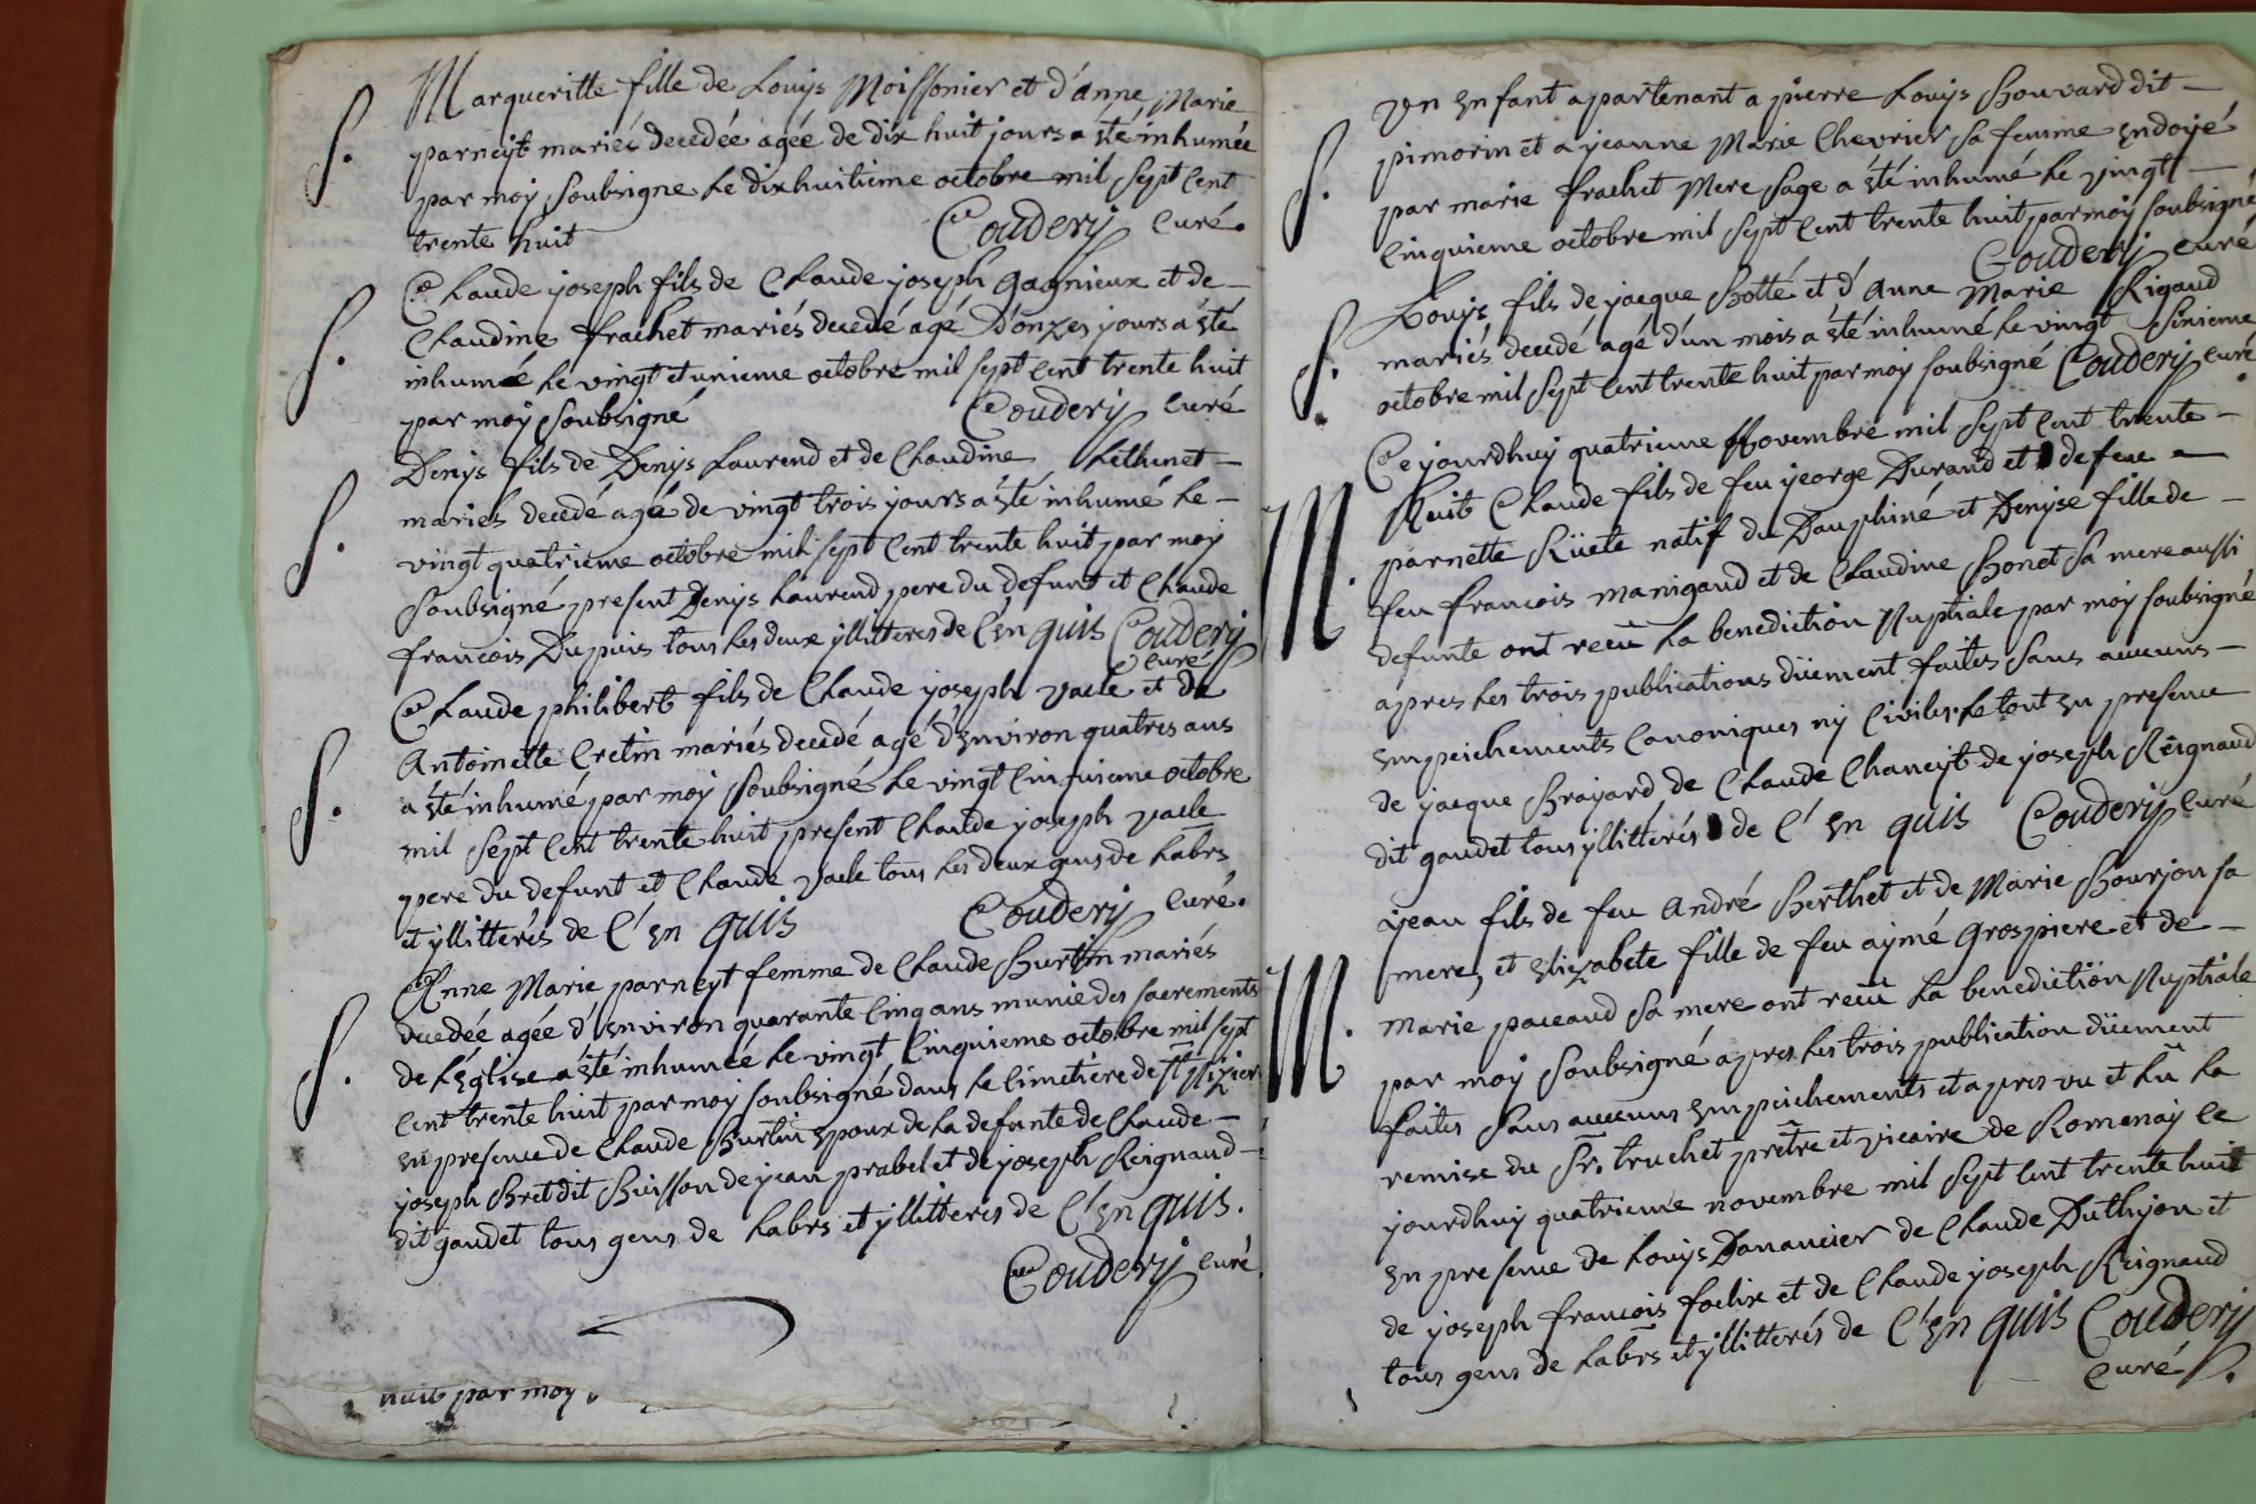 Margueritte fille de Louÿs Moissonier et d'anne Marie
S. parneyt mariés decedée agée de dix huit jours a été inhumée
par moÿ soubsigne le dixhuitieme octobre mil sept cent
trente huit Coudery curé.
Claude joseph fils de Claude joseph gagnieux et de
S. Claudine frachet mariés decedé agé D'onzes jours a été
inhumée le vingt et unieme octobre mil sept cent trente huit
par moÿ soubsigné Coudery curé
Denys fils de Denys Laurend et de Claudine Lethenet
S. mariés decedé agée de vingt trois jours a été inhumé le
vingt quatrieme octobre mil sept cent trente huit par moÿ
soubsigné present Denys Laurend pere du defunt et Claude
francois Dupuis tous les deux ÿllitteres de C'enquis Coudery
curé
Claude philibert fils de Claude joseph vacle et de
Antoinette Cretin mariés decedé agé d'environ quatres ans
S. a été inhumé par moÿ soubsigné le vingt cinquieme octobre
mil sept cent trente huit present Claude joseph vacle
pere du defunt et Claude vacle tous les deux gens de labrs
et ÿllitterés de C'enquis Coudery curé.
Anne Marie parneyt femme de Claude Burtin mariés
S. decedée agée d'environ quarante cinq ans munie des sacrements
de l'église a été inhumée le vingt cinquieme octobre mil sept
cent trente huit par moÿ soubsigné dans le cimetière de st Nizier
en presence de Claude Burtin epoux de la defunte de Claude
joseph Bret dit Buisson de jean prabel et de joseph Reignaud
dit gaudet tous gens de labrs et ÿllitteres de C'enquis.
Coudery curé
huit par moy
Un enfant apartenant a pierre Louÿs Bouvard dit
S. pimorin et a jeanne Marie Chevrier sa femme endoyé
par marie frachet Mere sage a été inhumé le vingt
cinquieme octobre mil sept cent trente huit par moÿ soubsigné
Coudery curé
Louÿs fils de jacque Botté et d'Anne Marie Rigaud
S. mariés decedé agé d'un mois a été inhumé le vingt sixieme
octobre mil sept cent trente huit par moÿ soubsigné Coudery curé
Cejourdhuÿ quatrieme Novembre mil sept cent trente
huit Claude fils de feu jeorge Durand et de feue
M. parnette Rüete natif du Dauphiné et Denyse fille de
feu francois manigaud et de Claudine Bonet sa mere aussi
defunte ont recû la benediction Nuptiale par moÿ soubsigné
apres les trois publications düement faites sans aucuns
empeichements Canoniques nÿ Civiles. Le tout en presence
de jacque Brayard de Claude Chaneyt de joseph Reignaud
dit gaudet tous ÿllitterés de C'enquis Coudery curé
jean fils de feu André Berthet et de Marie Bourjon sa
mere, et Elizabete fille de feu aÿmé Grospiere et de
M. Marie paccaud sa mere ont recû la benediction Nuptiale
par moÿ soubsigné apres les trois publication düement
faites sans aucuns empeichements et apres vu et lû la
remise du Sr. truchet prêtre et vicaire de Romenaÿ ce
jourdhuÿ quatrieme novembre mil sept cent trente huit
en presence de Louÿs Danancier de Claude Duthyon et
de joseph francois foelix et de Claude joseph Reignaud
tous gens de labrs et ÿllitterés de C'enquis Coudery
curé.